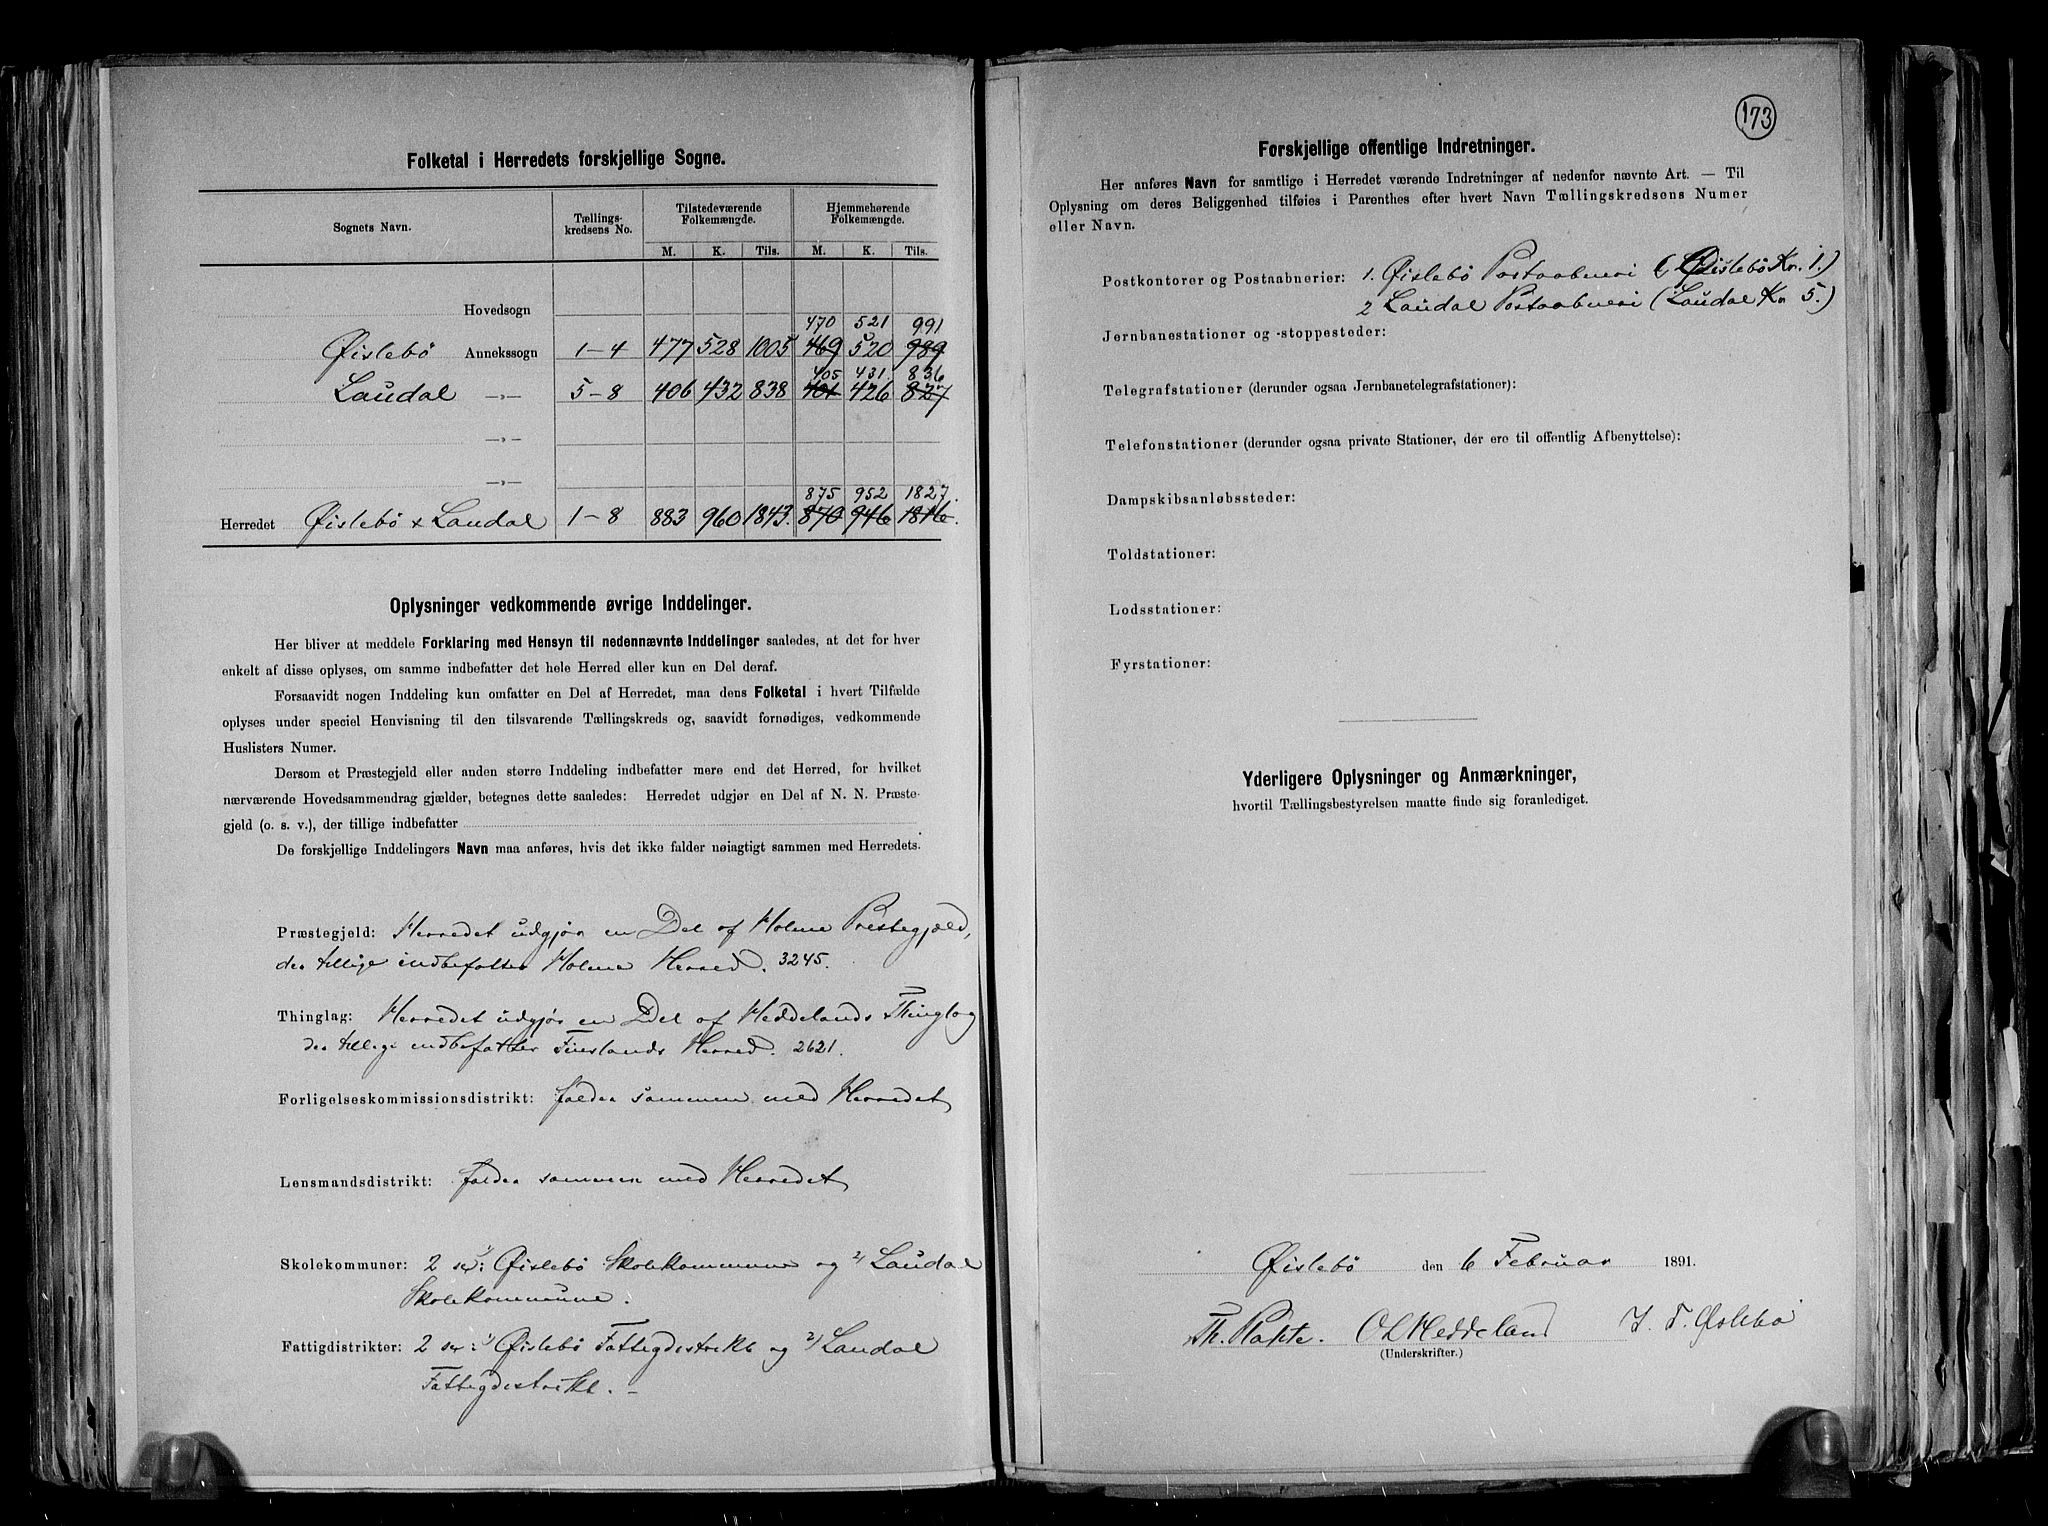 Folketal i Herredets forskjellige Sogne.
Sognets Navn. Tællings-kredsens No. Tilstedeværende Folkemængde. Hjemmehørende Folkemængde.
M. K. Tils. M. K. Tils.
Hovedsogn
470 521 991
Øislebö Annekssogn 1-4 477 528 1005 469 520 989
405 431 836
Laudal —„— 5-8 406 432 838 401 426 827
—„—
—„—
875 952 1827.
Herredet Øislebö & Laudal 1-8 883 960 1843. 870 946 1816.
Oplysninger vedkommende øvrige Inddelinger.
Her bliver at meddele Forklaring med Hensyn til nedennævnte Inddelinger saaledes, at det for hver
enkelt af disse oplyses, om samme indbefatter det hele Herred eller kun en Del deraf.
Forsaavidt nogen Inddeling kun omfatter en Del af Herredet, maa dens Folketal i hvert Tilfælde
oplyses under speciel Henvisning til den tilsvarende Tællingskreds og, saavidt fornødiges, vedkommende
Huslisters Numer.
Dersom et Præstegjeld eller anden større Inddeling indbefatter mere end det Herred, for hvilket
nærværende Hovedsammendrag gjælder, betegnes dette saaledes: Herredet udgjør en Del af N. N. Præste-
gjeld (o. s. v.), der tillige indbefatter
De forskjellige Inddelingers Navn maa anføres, hvis det ikke falder nøiagtigt sammen med Herredets.
Præstegjeld: Herredet udgjør en Del af Holme Prestegjæld,
der tillige indbefatter Holme Herred. 3245.
Thinglag: Herredet udgjør en Del af Heddelands Thinglag
der tillige indbefatter Finslands Herred. 2621.
Forligelseskommissionsdistrikt: falder sammen med Herredet
Lensmandsdistrikt: falder sammen med Herredet
Skolekommuner: 2 ser: 1/ Øislebö Skolekommune og 2/ Laudal
Skolekommune.
Fattigdistrikter: 2 ser: 1/ Øislebö Fattigdistrikt og 2/ Laudal
Fattigdistrikt. —
173
Forskjellige offentlige Indretninger.
Her anføres Navn for samtlige i Herredet værende Indretninger af nedenfor nævnte Art. — Til
Oplysning om deres Beliggenhed tilføies i Parenthes efter hvert Navn Tællingskredsens Numer
eller Navn.
Postkontorer og Postaabnerier: 1. Øislebö Postaabneri (Øislebö Kr. 1.)
2 Laudal Postaabneri (Laudal Kr 5.)
Jernbanestationer og -stoppesteder:
Telegrafstationer (derunder ogsaa Jernbanetelegrafstationer):
Telefonstationer (derunder ogsaa private Stationer, der ere til offentlig Afbenyttelse):
Dampskibsanløbssteder:
Toldstationer:
Lodsstationer:
Fyrstationer:
Yderligere Oplysninger og Anmærkninger,
hvortil Tællingsbestyrelsen maatte finde sig foranlediget.
Øislebö den 6 Februar 1891.
Th. O L Heddeland T. Øislebö
(Underskrifter.)